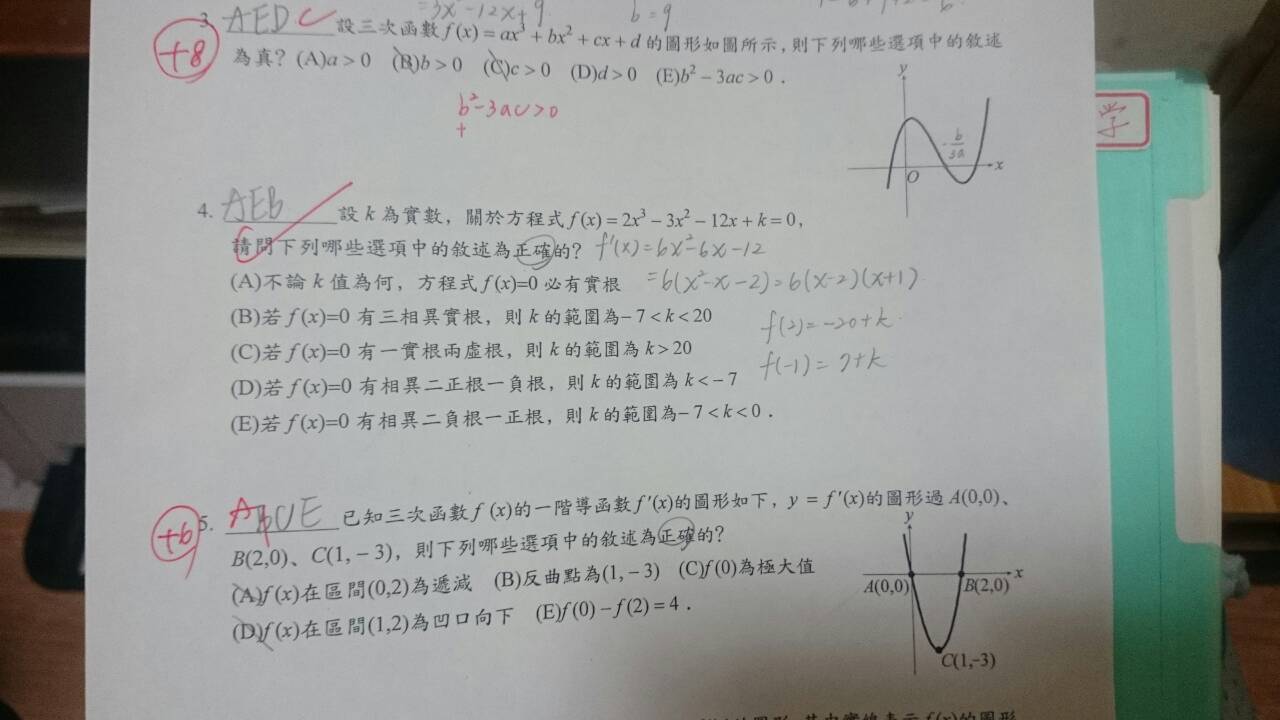 =3x²-12x+9
b=9
3. AEDC 設三次函數 f(x)=ax³+bx²+cx+d 的圖形如圖所示,則下列哪些選項中的敘述
+8
為真? (A)a>0 (B)b>0 (C)c>0 (D)d>0 (E)b²-3ac>0.
b²-3ac>0
+
y
-b/3a
O
x
学
4. AEB 設 k 為實數,關於方程式 f(x)=2x³-3x²-12x+k=0,
請問下列哪些選項中的敘述為正確的? f'(x)=6x²-6x-12
(A)不論 k 值為何,方程式 f(x)=0 必有實根 =6(x²-x-2)=6(x-2)(x+1)
(B)若 f(x)=0 有三相異實根,則 k 的範圍為-7<k<20
f(2)=-20+k
(C)若 f(x)=0 有一實根兩虛根,則 k 的範圍為 k>20
f(-1)=7+k
(D)若 f(x)=0 有相異二正根一負根,則 k 的範圍為 k<-7
(E)若 f(x)=0 有相異二負根一正根,則 k 的範圍為-7<k<0.
+6
5. 已知三次函數 f(x)的一階導函數 f'(x)的圖形如下,y=f'(x)的圖形過 A(0,0)、
B(2,0)、C(1,-3),則下列哪些選項中的敘述為正確的?
(A)f(x)在區間(0,2)為遞減 (B)反曲點為(1,-3) (C)f(0)為極大值
(D)f(x)在區間(1,2)為凹口向下 (E)f(0)-f(2)=4.
y
x
A(0,0)
B(2,0)
C(1,-3)